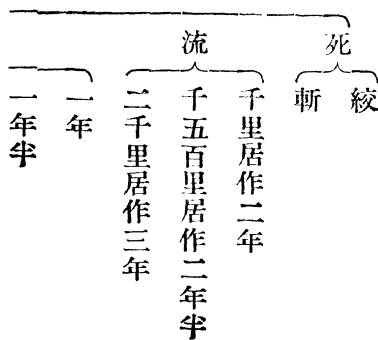 死
絞
斬
流
千里居作二年
千五百里居作二年半
二千里居作三年
一年
一年半